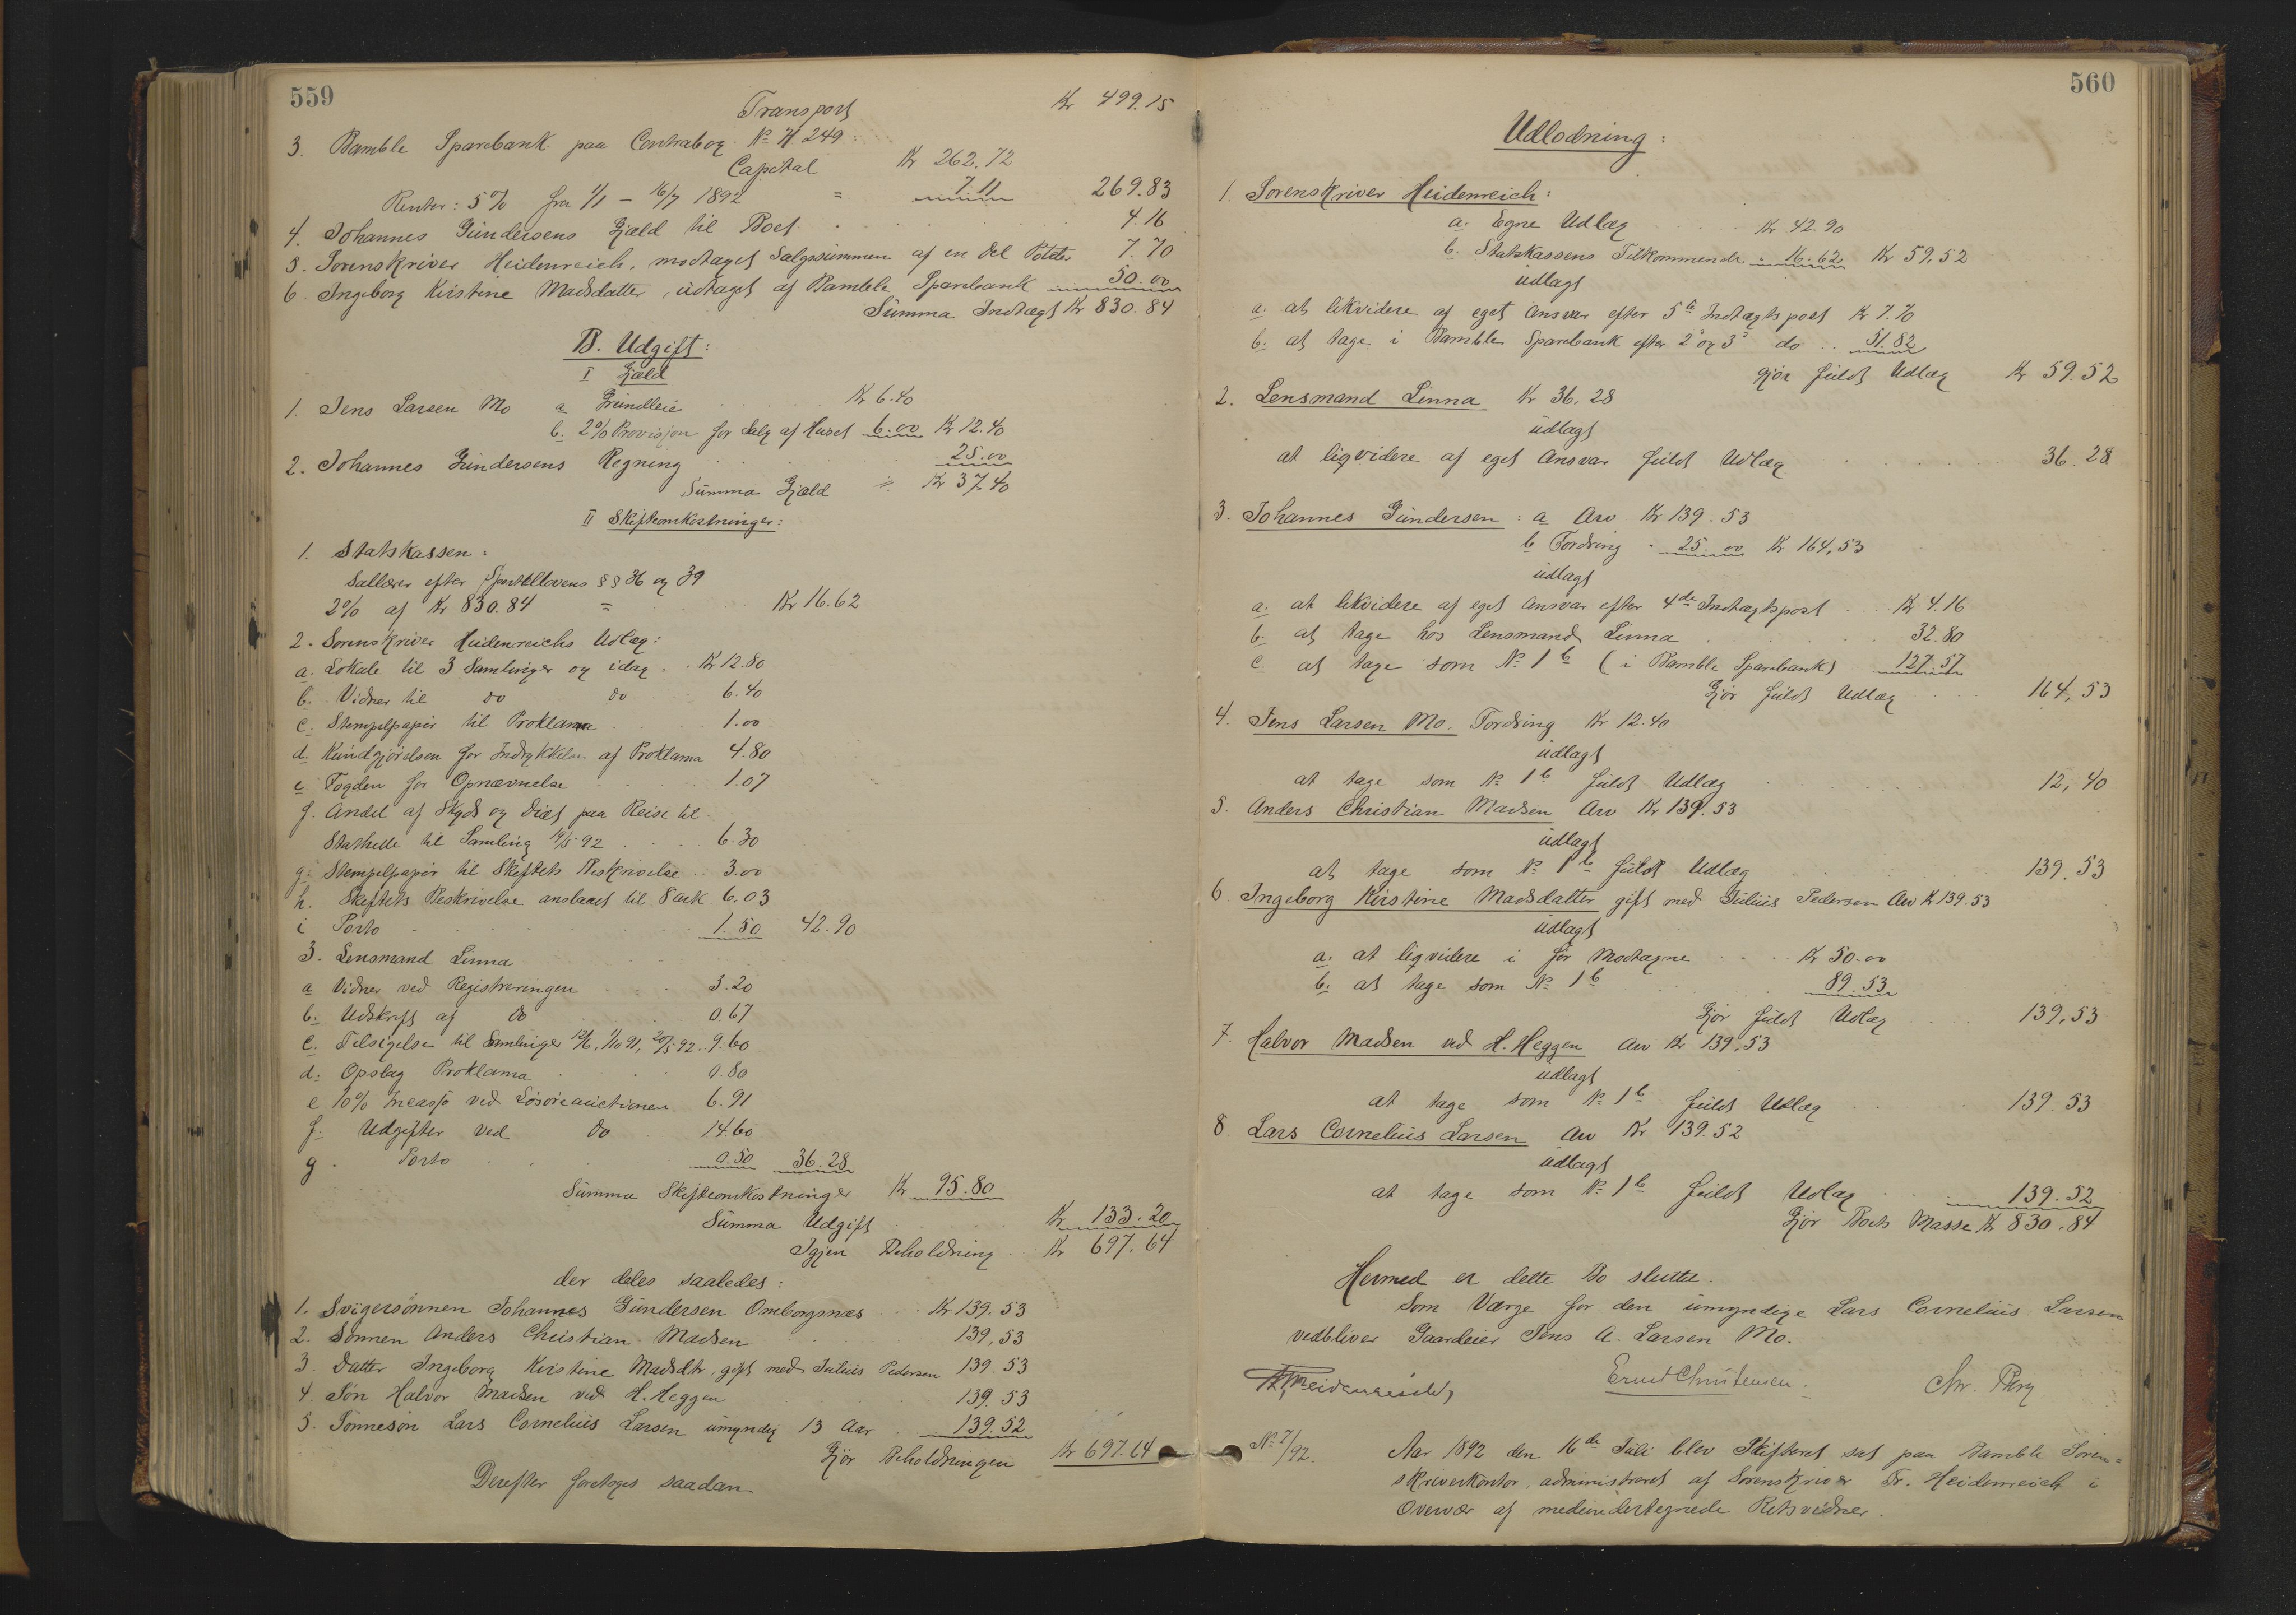 559
Transport Kr 499.15
3. Bamble Sparebank paa Contrabog No H 249:
Capital Kr 262.72
Renter: 5% fra 1/1 – 16/7 1892 = 7.11 269.83
4. Johannes Gundersens Gjæld til Boet 4.16
5. Sorenskriver Heidenreich, modtaget Salgssummen af en Del Poteter 7.70
6. Ingeborg Kirstine Madsdatter, udtaget af Bamble Sparebank 50.00
Summa Indtægt Kr 830.84
B. Udgift:
I Gjæld
1. Jens Larsen Mo a Grundleie Kr 6.40
b. 2% Provisjon for Salg af Huset 6.00 Kr 12.40
2. Johannes Gundersens Regning 25.00
Summa Gjæld Kr 37.40
II Skifteomkostninger:
1. Statskassen:
Sallærer efter Sportellovens §§ 36 og 39
2% af Kr 830.84 = Kr 16.62
2. Sorenskriver Heidenreichs Udlæg:
a. Lokale til 3 Samlinger og idag Kr 12.80
b. Vidner til do do 6.40
c. Stempelpapir til Proklama 1.00
d. Kundgjørelsen for Indrykkelse af Proklama 4.80
e Fogden for Opnævnelse 1.07
f. Andel af Skyds og Diæt paa Reise til
Stathelle til Samling 19/5 92 6.30
g. Stempelpapir til Skiftets Beskrivelse 3.00
h. Skiftets Beskrivelse anslaaet til 8 ark 6.03
i Porto 1.50 42.90
3. Lensmand Linna
a Vidner ved Registreringen 3.20
b. Udskrift af do 0.67
c. Tilsigelse til Samlinger 12/6, 1/10 91, 20/5 92 9.60
d. Opslag Proklama 0.80
e 10% Incasso ved Løsøreauctionen 6.91
f. Udgifter ved do 14.60
g. Porto 0.50 36.28
Summa Skifteomkostninger Kr 95.80
Summa Udgift Kr 133.20
Igjen Beholdning Kr 697.64
der deles saaledes:
1. Svigersønnen Johannes Gundersen Omborgsnæs Kr 139.53
2. Sønnen Anders Christian Madsen 139,53
3. Datter Ingeborg Kirstine Madsdtr, gift med Julius Pedersen 139.53
4. Søn Halvor Madsen ved H. Heggen 139.53
5. Sønnesøn Lars Cornelius Larsen umyndig 13 Aar 139.52
Gjør Beholdningen Kr 697.64
Derefter foretoges saadan
560
Udlodning:
1. Sorenskriver Heidenreich:
a. Egne Udlæg Kr 42.90
b. Statskassens Tilkommende 16.62 Kr 59,52
udlagt
a. at likvidere af eget Ansvar efter 5te Indtægtspost Kr 7.70
b. at tage i Bamble Sparebank efter 2° og 3° do 51.82
gjør fuldt Udlæg Kr 59.52
2. Lensmand Linna Kr 36.28
udlagt
at liqvidere af eget Ansvar fuldt Udlæg 36.28
3. Johannes Gundersen: a Arv Kr 139.53
b Fordring 25.00 Kr 164,53
udlagt
a. at likvidere af eget Ansvar efter 4de Indtægtspost Kr 4.16
b. at tage hos Lensmand Linna 32.80
c. at tage som No 1 b (i Bamble Sparebank) 127.57
Gjør fuldt Udlæg 164,53
4. Jens Larsen Mo. Fordring Kr 12.40
udlagt
at tage som No 1 b fuldt Udlæg 12,40
5. Anders Christian Madsen Arv Kr 139.53
udlagt
at tage som No 1 b fuldt Udlæg 139.53
6. Ingeborg Kirstine Madsdatter gift med Julius Pedersen Arv Kr 139.53
udlagt
a. at liqvidere i før Modtagne Kr 50.00
b. at tage som No 1 b 89.53
Gjør fuldt Udlæg 139,53
7. Halvor Madsen ved H. Heggen Arv Kr 139.53
udlagt
at tage som No 1 b fuldt Udlæg 139.53
8 Lars Cornelius Larsen Arv Kr 139.52
udlagt
at tage som No 1 b fuldt Udlæg 139.52
Gjør Boets Masse Kr 830.84
Hermed er dette Bo sluttet.
Som Værge for den umyndige Lars Cornelius Larsen
vedbliver Gaardeier Jens A. Larsen Mo.
Heidenreich Ernst Christensen Chr. Berg
No 7/92. Aar 1892 den 16de Juli blev Skifteret sat paa Bamble Soren=
skriverkontor, administreret af Sorenskriver Fr. Heidenreich i
Overvær af medundertegnede Retsvidner.